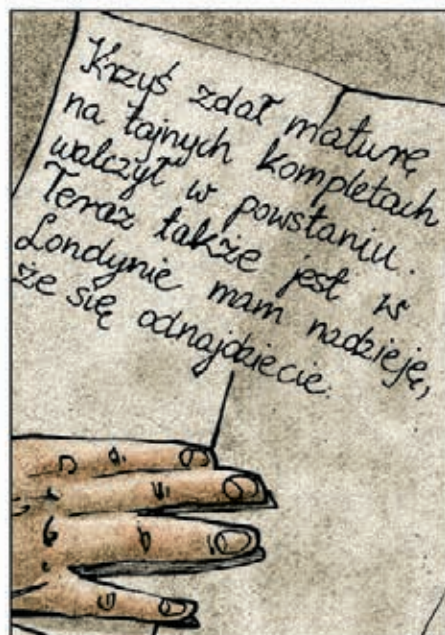 Krzyś zdał maturę
na tajnych kompletach
walczył w powstaniu.
Teraz także jest w
Londynie mam nadzieję,
że się odnajdziecie.